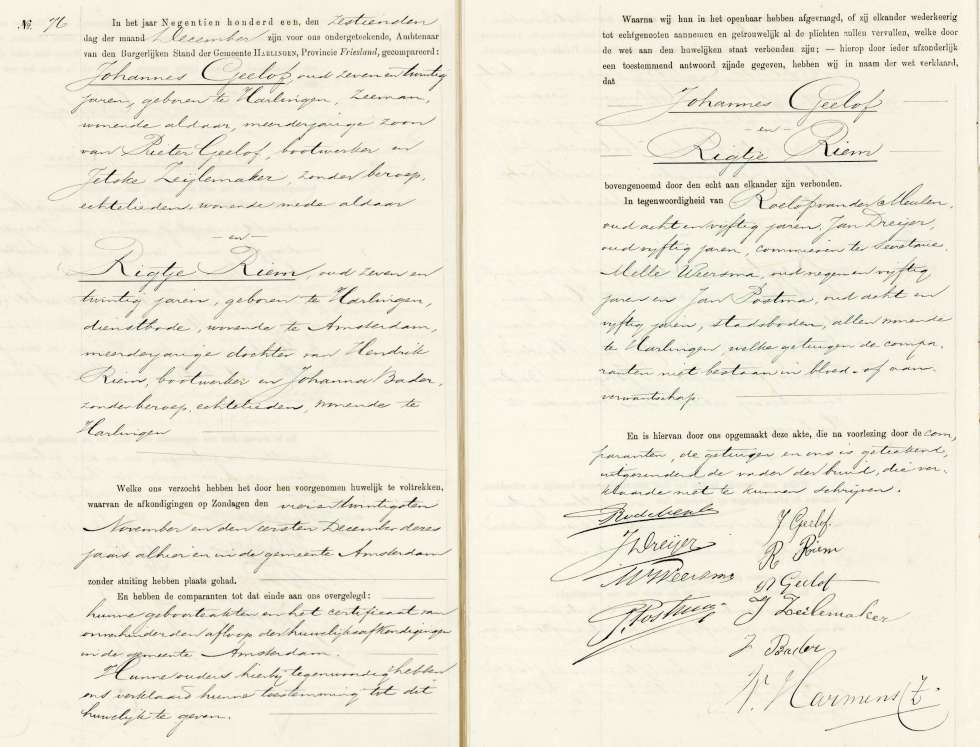 No. 76
In het jaar Negentien honderd een, den zestienden
dag der maand December zijn voor ons ondergeteekende, Ambtenaar
van den Burgerlijken Stand der Gemeente HARLINGEN, Provincie Friesland, gecompareerd:
Johannes Geelof, oud zeven en twintig
jaren, geboren te Harlingen, zeeman,
wonende aldaar, meerderjarige zoon
van Pieter Geelof, bootwerker en
Jetske Zeijlemaker, zonder beroep,
echtelieden, wonende mede aldaar
— en —
Rigtje Riem, oud zeven en
twintig jaren, geboren te Harlingen,
dienstbode, wonende te Amsterdam,
meerderjarige dochter van Hendrik
Riem, bootwerker en Johanna Bader,
zonder beroep, echtelieden, wonende te
Harlingen
Welke ons verzocht hebben het door hen voorgenomen huwelijk te voltrekken,
waarvan de afkondigingen op Zondagen den vierentwintigsten
November en den eersten December dezes
jaars alhier en in de gemeente Amsterdam
zonder stuiting hebben plaats gehad.
En hebben de comparanten tot dat einde aan ons overgelegd:
hunne geboorteakten en het certificaat van
onverhinderden afloop der huwelijksafkondigingen
in de gemeente Amsterdam.
Hunne ouders hierbij tegenwoordig hebben
ons verklaard hunne toestemming tot dit
huwelijk te geven.
Waarna wij hun in het openbaar hebben afgevraagd, of zij elkander wederkeerig
tot echtgenooten aannemen en getrouwelijk al de plichten zullen vervullen, welke door
de wet aan den huwelijken staat verbonden zijn; — hierop door ieder afzonderlijk
een toestemmend antwoord zijnde gegeven, hebben wij in naam der wet verklaard,
dat
Johannes Geelof
— en —
Rigtje Riem
bovengenoemd door den echt aan elkander zijn verbonden.
In tegenwoordigheid van Roelof van der Meulen,
oud acht en vijftig jaren, Jan Dreijer,
oud vijftig jaren, commiezen ter secretarie,
Melle Weersma, oud negen en vijftig
jaren en Jan Postma, oud acht en
vijftig jaren, stadsboden, allen wonende
te Harlingen, welke getuigen de compa-
ranten niet bestaan in bloed- of aan-
verwantschap.
En is hiervan door ons opgemaakt deze akte, die na voorlezing door de com-
paranten, de getuigen en ons is geteekend,
uitgezonderd de vader der bruid, die ver-
klaarde niet te kunnen schrijven.
J Geelof.
J Dreijer
R Riem
M Weersma
P Geelof
J. Postma
J Zeilemaker
J Bader
Harmens Z.